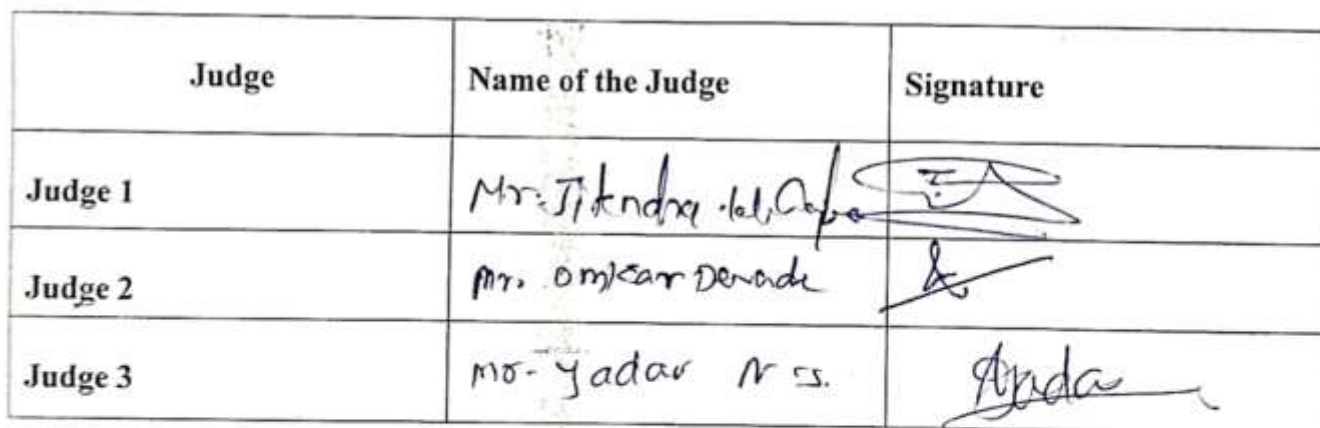 Judge Name of the Judge Signature
Judge 1 Mr. Jitendra
Judge 2 Mr. Omkar
Judge 3 Mr. Yadav N S.